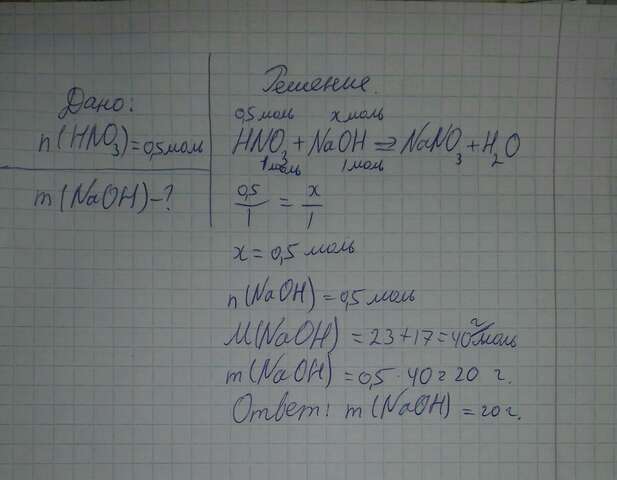 Дано:
n(HNO₃)=0,5моль
m(NaOH)-?
Решение.
0,5моль х моль
HNO₃+NaOH=NaNO₃+H₂O
1моль 1моль
0,5/1 = x/1
x=0,5 моль
n(NaOH)=0,5 моль
M(NaOH)=23+17=40г/моль
m(NaOH)=0,5·40=20 г.
Ответ: m(NaOH)=20г.